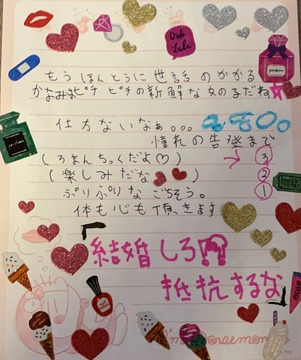 Ooh Lala
もう ほんとうに 世話 のかかる
かなみ ピチ ピチの新鮮な女の子だね
仕方 ないなぁ。。。
憧れの告登まで
(ろまんちっくだよ♡) → ③
(楽しみだな) ②
ぷりぷりな ごちそう。 ①
体も心も頂きます
結婚しろ!?
抵抗するな
I'm Doraemon